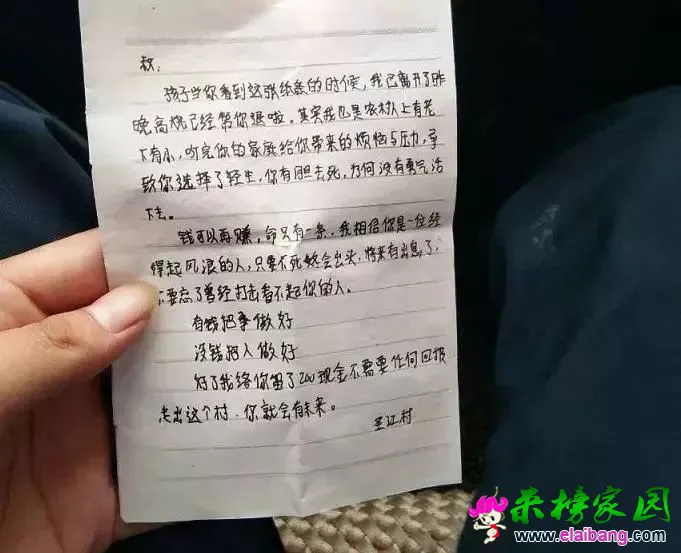 叔:
孩子当你看到这张纸条的时候,我已离开了昨
晚高烧已经帮你退啦。其实我也是农村人上有老
下有小,听完你的家庭给你带来的烦恼与压力,导
致你选择了轻生,你有胆去死,为何没有勇气活
下去。
钱可以再赚,命只有一条,我相信你是一位经
得起风浪的人,只要不死终会出头,将来有出息了,
不要忘了曾经打击看不起你的人。
有钱把事做好
没钱把人做好
对了我给你留了200现金不需要任何回报
走出这个村.你就会有未来。
王江村
来榜家园
www.elaibang.com